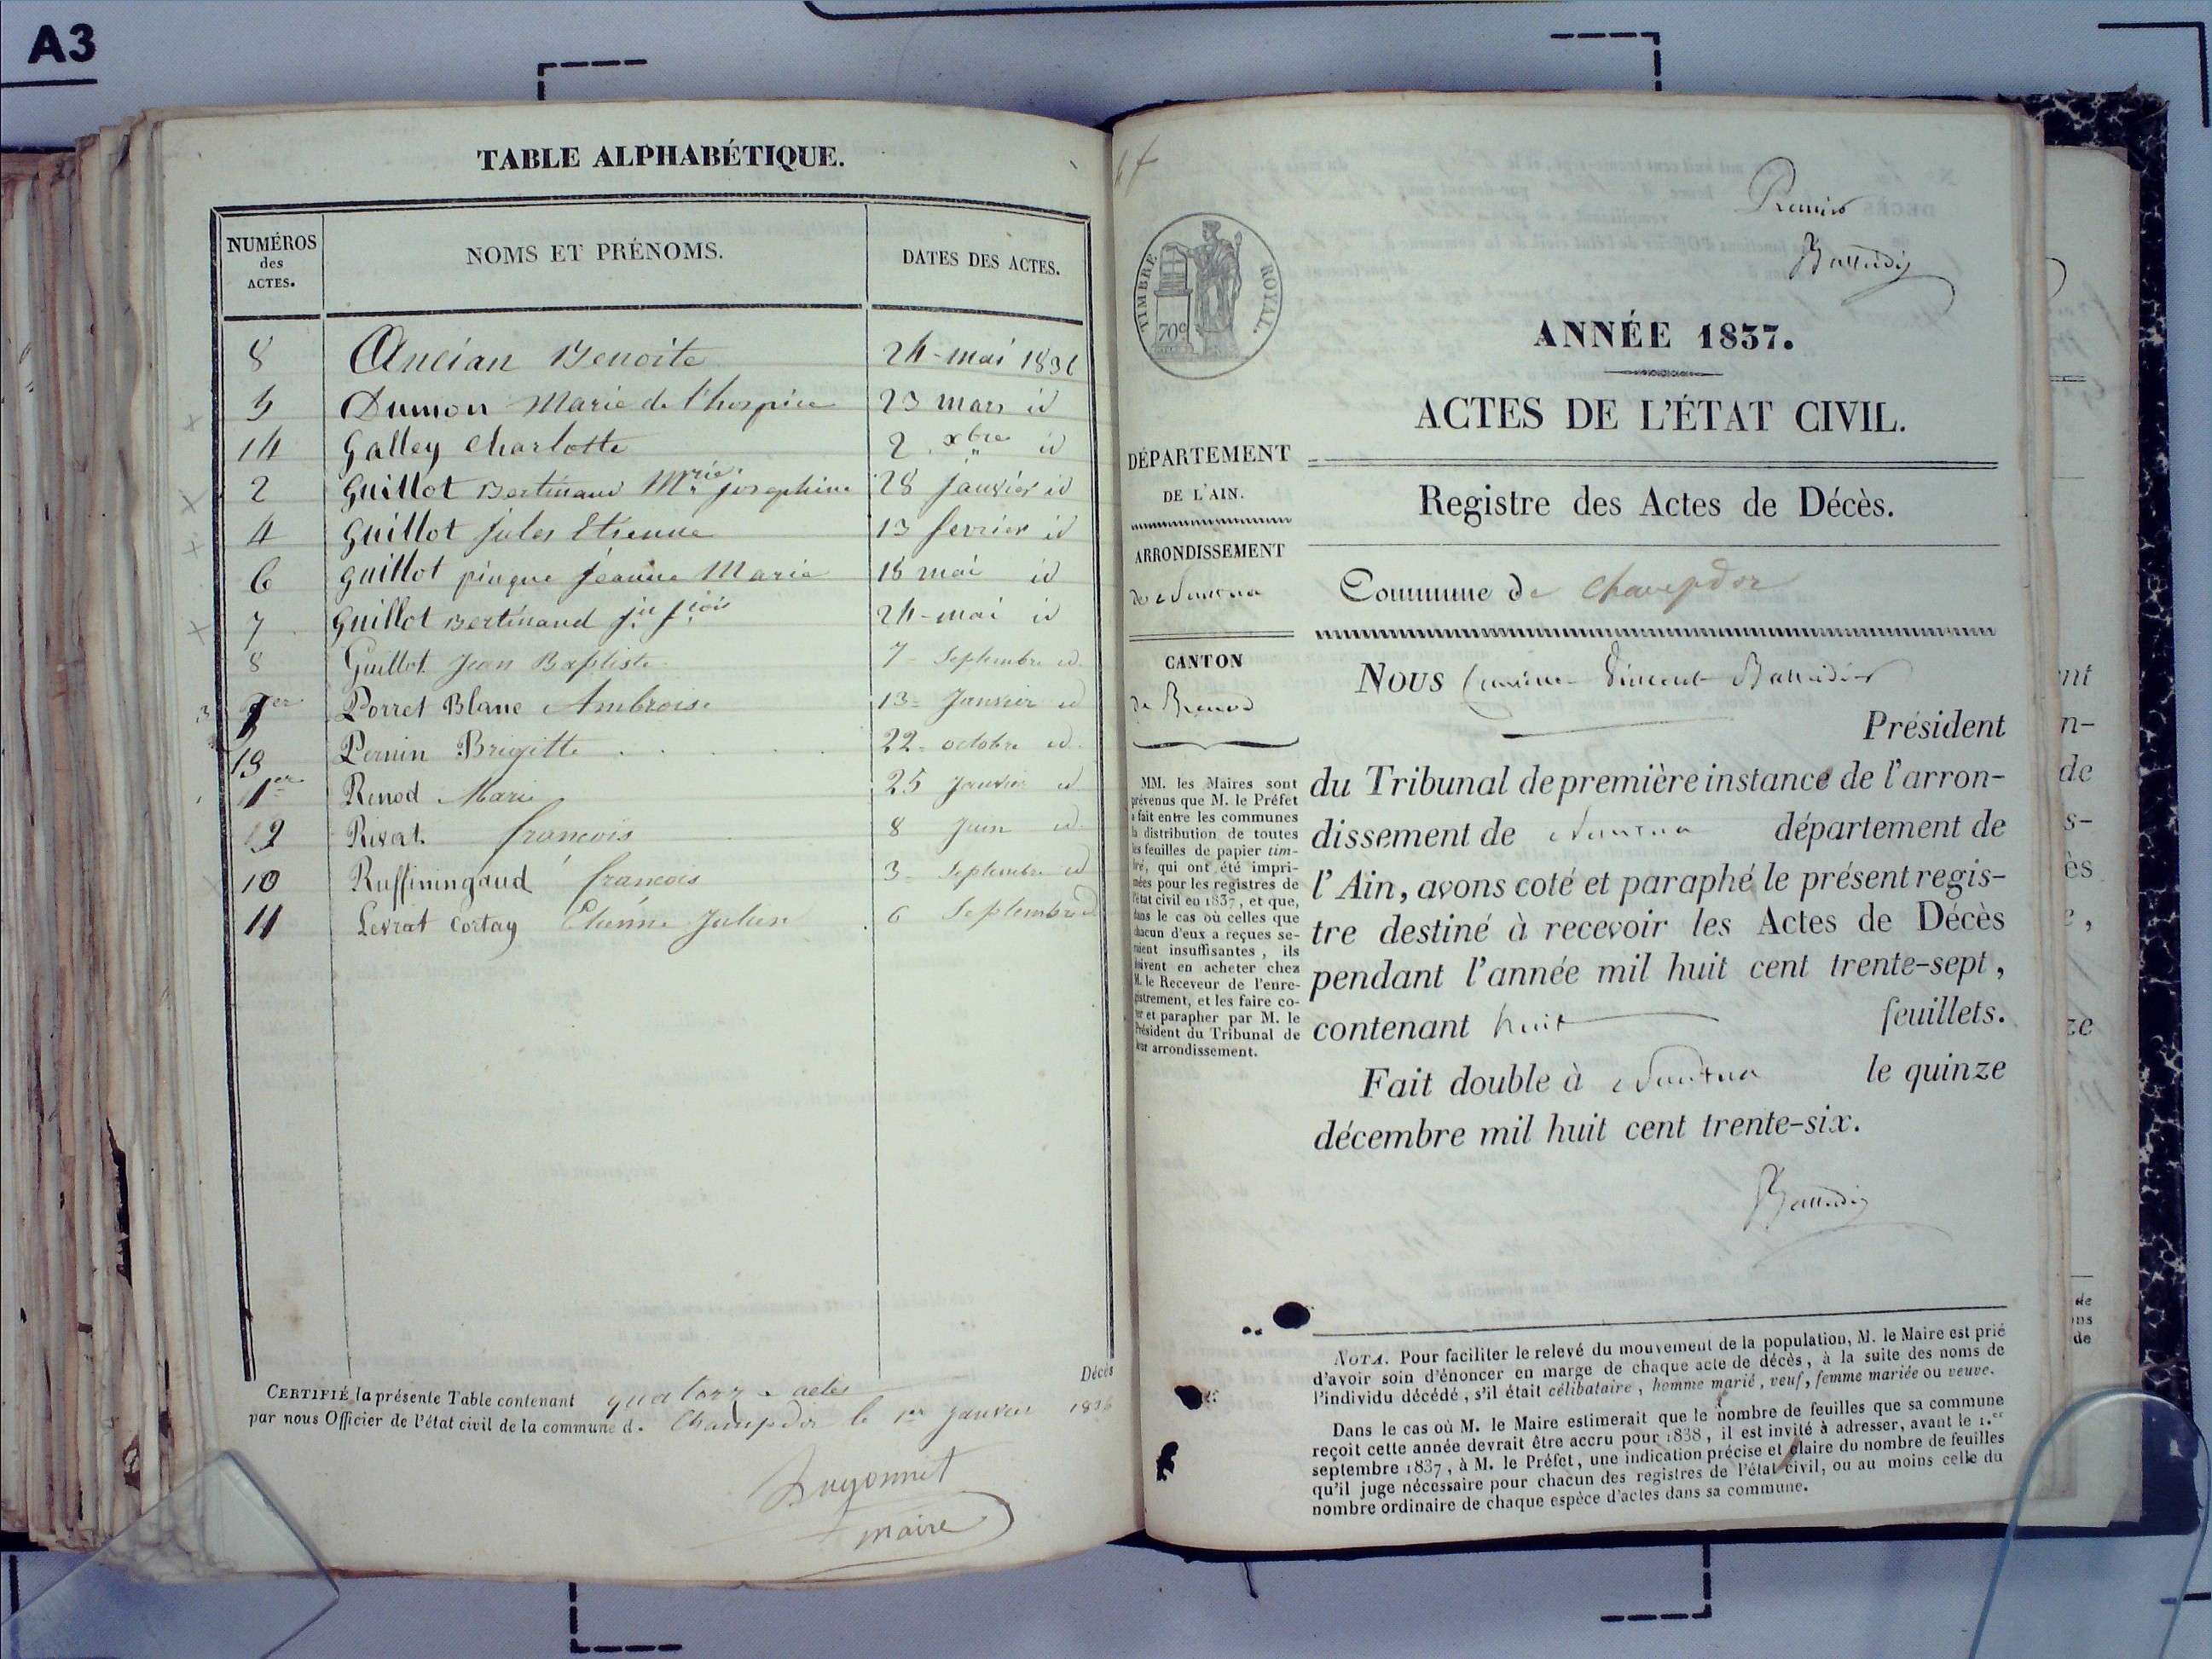 A3
TABLE ALPHABÉTIQUE.
NUMÉROS des ACTES. NOMS ET PRÉNOMS. DATES DES ACTES.
8 Ancian Benoite 24 mai 1836
5 Dumon Marie de l'hospice 23 mars id
14 Galley Charlotte 2 xbre id
2 Guillot Bertinand Mrie josephine 28 janvier id
4 Guillot jules Etienne 13 fevrier id
6 guillot pingue jeanne Marie 18 mai id
7 Guillot Bertinand 24 mai id
8 Guillot Jean Baptiste 7 Septembre id
Porret Blanc Ambroise 13 Janvier id
13 Pernin Brigitte 22 octobre id
1er Renod Marie 25 Janvier id
Rivat francois 8 Juin id
10 Ruffiningaud francois 3 Septembre id
11 Levrat Cortay Etienne Julien 6 Septembre id
Décès
CERTIFIÉ la présente Table contenant quatorze actes
par nous Officier de l'état civil de la commune d. Champdor le 1er janvier 1836
Dugonnet
maire
Premier
TIMBRE ROYAL.
70c
ANNÉE 1837.
ACTES DE L'ÉTAT CIVIL.
Registre des Actes de Décès.
DÉPARTEMENT
DE L'AIN.
ARRONDISSEMENT
de Nantua
CANTON
de Brenod
MM. les Maires sont
prévenus que M. le Préfet
a fait entre les communes
la distribution de toutes
les feuilles de papier tim-
bré, qui ont été impri-
mées pour les registres de
l'état civil en 1837, et que,
dans le cas où celles que
chacun d'eux a reçues se-
raient insuffisantes, ils
doivent en acheter chez
M. le Receveur de l'enre-
gistrement, et les faire co-
ter et parapher par M. le
Président du Tribunal de
leur arrondissement.
Commune de Champdor
NOUS Vincent
Président
du Tribunal de première instance de l'arron-
dissement de Nantua département de
l'Ain, avons coté et paraphé le présent regis-
tre destiné à recevoir les Actes de Décès
pendant l'année mil huit cent trente-sept,
contenant huit feuillets.
Fait double à Nantua le quinze
décembre mil huit cent trente-six.
NOTA. Pour faciliter le relevé du mouvement de la population, M. le Maire est prié
d'avoir soin d'énoncer en marge de chaque acte de décès, à la suite des noms de
l'individu décédé, s'il était célibataire, homme marié, veuf, femme mariée ou veuve.
Dans le cas où M. le Maire estimerait que le nombre de feuilles que sa commune
reçoit cette année devrait être accru pour 1838, il est invité à adresser, avant le 1.er
septembre 1837, à M. le Préfet, une indication précise et claire du nombre de feuilles
qu'il juge nécessaire pour chacun des registres de l'état civil, ou au moins celle du
nombre ordinaire de chaque espèce d'actes dans sa commune.